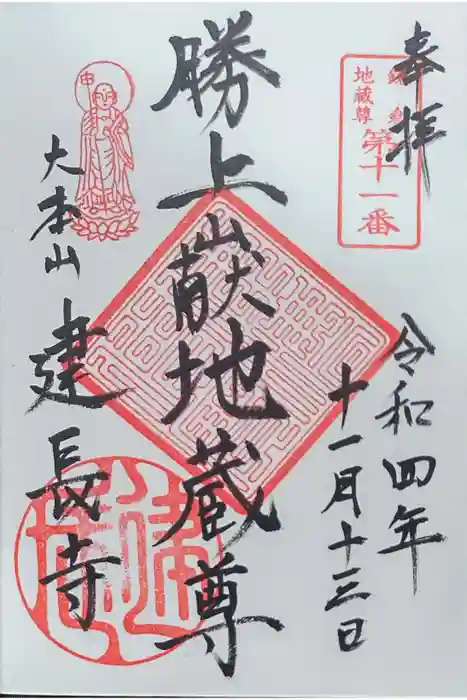 奉拝
鎌倉
地蔵尊
第十一番
令和四年
十一月十三日
勝上献地蔵尊
大本山
建長寺